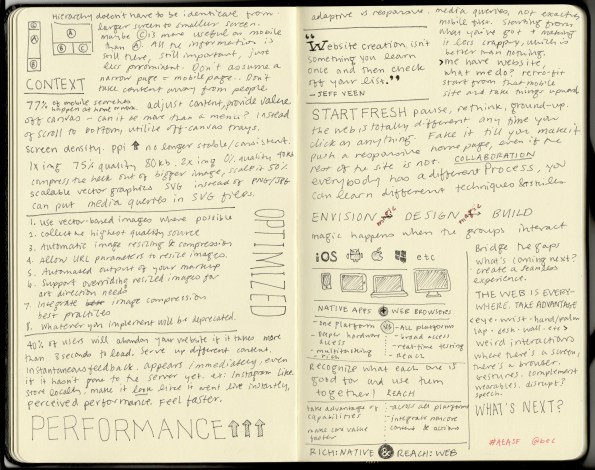 Hierarchy doesn't have to be identical from
larger screen to smallest screen.
Maybe C is more useful on mobile
than A. All the information is
still there, still important, just
less prominent. Don't assume a
narrow page = mobile page. Don't
take content away from people.
B
A
C
A
B
C
CONTEXT
77% of mobile searches happen at home or work. adjust content, provide value.
off canvas - can it be more than a menu? Instead
of scroll to bottom, utilize off-canvas trays.
Screen density. ppi ↑ no longer stable/consistent.
1x img 75% quality 80kb. 2x img 0% quality
compress the heck out of bigger image, scale it 50%
scalable vector graphics SVG instead of PNG/JPG
can put media queries in SVG files.
1. Use vector-based images where possible
2. Collect the highest quality source
3. Automatic image resizing & compression
4. Allow URL parameters to resize images.
5. Automated output of your markup
6. Support overriding resized images for
art direction needs
7. Integrate image compression
best practices
8. Whatever you implement will be deprecated.
OPTIMIZED
40% of users will abandon your website if it takes more
than 3 seconds to load. Serve up different content,
instantaneous feedback. appears immediately, even
if it hasn't gone to the server yet. ex: Instagram like.
store locally. make it look like it went live instantly,
perceived performance. Feel faster.
PERFORMANCE ↑↑↑
adaptive is responsive.
"Website creation isn't
something you learn
once and then check
off your list."
- JEFF VEEN
media queries, not exactly
mobile first. Starting from
what you've got & making
it less crappy, which is
better than nothing.
> me have website,
what me do? retrofit
start from that mobile
site and take things upward
START FRESH pause, rethink, ground-up.
the web is totally different any time you
click on anything. Fake it till you make it
put a responsive home page, even if the
rest of the site is not. COLLABORATION
everybody has a different process, you
can learn different techniques & skills
ENVISION magic DESIGN magic BUILD
magic happens when the groups interact
iOS etc
NATIVE APPS + WEB BROWSERS
- one platform
- super hardware
access
- multitasking
VS
- All platforms
- broad access
- real-time testing
- Reach
Recognize what each one is
good for and use them
together! REACH
take advantage of
capabilities
make core value
faster
- across all platforms
- integrate narrative
- content & actions
RICH: NATIVE & REACH: WEB
Bridge the gaps
What's coming next?
create a seamless
experience.
THE WEB IS EVERY-
WHERE. TAKE ADVANTAGE
<eye-wrist-hand/palm
lap-desk-wall-etc>
Weird interactions
where there's a screen,
there's a browser.
gestures. complement
wearables, disrupt?
speech.
WHAT'S NEXT?
#AEASF